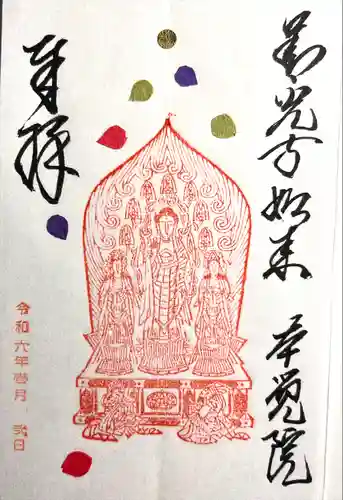 善光寺如来 本覚院
奉拝
令和六年壱月 弐日